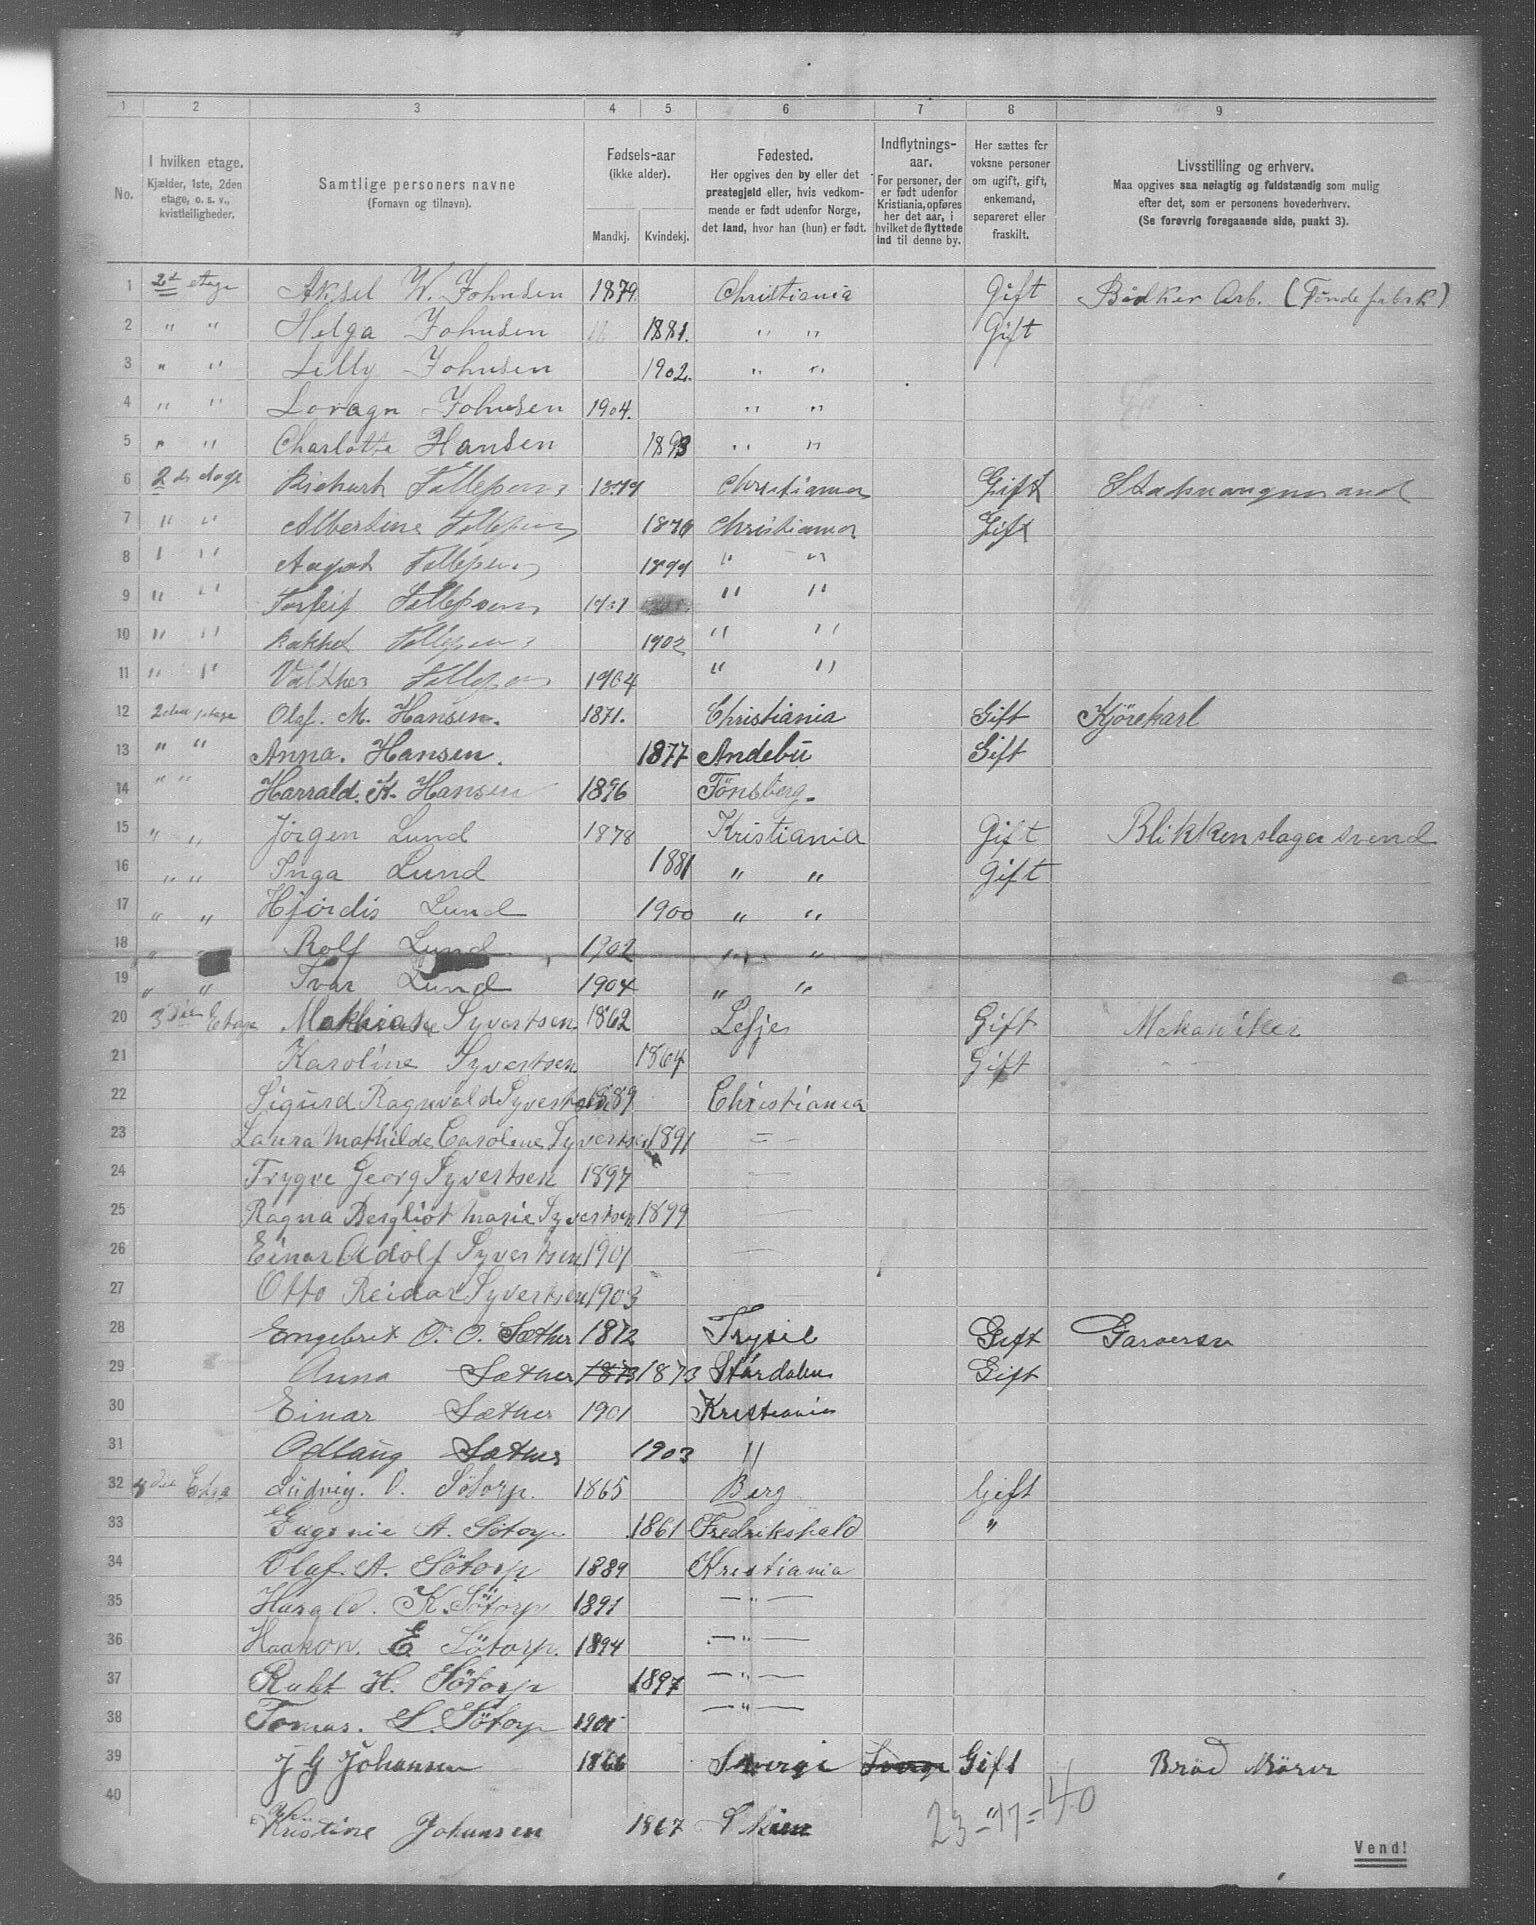 1 2 3 4 5 6 7 8 9
No.
I hvilken etage.
Kjælder, 1ste, 2den
etage, o. s. v.,
kvistleiligheder.
Samtlige personers navne
(Fornavn og tilnavn).
Fødsels-aar
(ikke alder).
Mandkj. Kvindekj.
Fødested.
Her opgives den by eller det
prestegjeld eller, hvis vedkom-
mende er født udenfor Norge,
det land, hvor han (hun) er født.
Indflytnings-
aar.
For personer, der
er født udenfor
Kristiania, opføres
her det aar, i
hvilket de flyttede
ind til denne by.
Her sættes for
voksne personer
om ugift, gift,
enkemand,
separeret eller
fraskilt.
Livsstilling og erhverv.
Maa opgives saa nøiagtig og fuldstændig som mulig
efter det, som er personens hovederhverv.
(Se forøvrig foregaaende side, punkt 3).
1 2d etage Aksel W. Johnsen 1879 Christiania Gift Bödker Arb. (Töndefabrk)
2 " " Helga Johnsen 1881. " " Gift
3 " " Lilly Johnsen 1902. " "
4 " " Johnsen 1904. " "
5 " " Charlotte Hansen 1893 " "
6 2 Christiania Gift
7 " " Albertine 1876 Christiania Gift
8 " " 1899 " "
9 " " 1901 " "
10 " " 1902 " "
11 " " Valther 1904 " "
12 2den etage Olaf. M. Hansen. 1871. Christiania Gift Kjörekarl
13 " " Anna. Hansen. 1877 Andebu Gift
14 " " Harrald. H. Hansen 1896 Tönsberg.
15 " " Jörgen Lund 1878 Kristiania Gift Blikkenslagersvend
16 " " Inga Lund 1881 " " Gift
17 " " Hjördis Lund 1900 " "
18 " " Rolf Lund. 1902 " "
19 " " Ivar Lund 1904 " "
20 3die Etage Syvertsen 1862 Lesje Gift Mekaniker
21 Karoline Syvertsen 1864 Gift
22 Sigurd Ragnvald Syvertsen 1889 Christiania
23 Laura Mathilde Caroline Syvertsen 1891 — " —
24 Trygve Georg Syvertsen 1897 —
25 Ragna Bergliot Marie Syvertsen 1899 —
26 Einar Adolf Syvertsen 1901 —
27 Otto Reidar Syvertsen 1903
28 Engebret O. O. Sæther 1872 Trysil Gift Garversv
29 Anna Sæther 1873 1873 Stördalen Gift
30 Einar Sæther 1901 Kristiania
31 Odlaug Sæther 1903 "
32 die Etage Ludvig. O. Sötorp. 1865 Berg Gift
33 Eugenie A. Sötorp 1861 Fredrikshald "
34 Olaf. A. Sötorp 1889 Kristiania
35 Harald. K. Sötorp 1891 — " —
36 Haakon. E Sötorp. 1894 — " —
37 H. Sötorp 1897 — " —
38 Tomas. L. Sötorp 1901 — " —
39 J G Johansen 1866 Sverge Sverge Gift Bröd
40 Kristine Johansen 1867 Skien "
23 - 17 = 40
Vend!